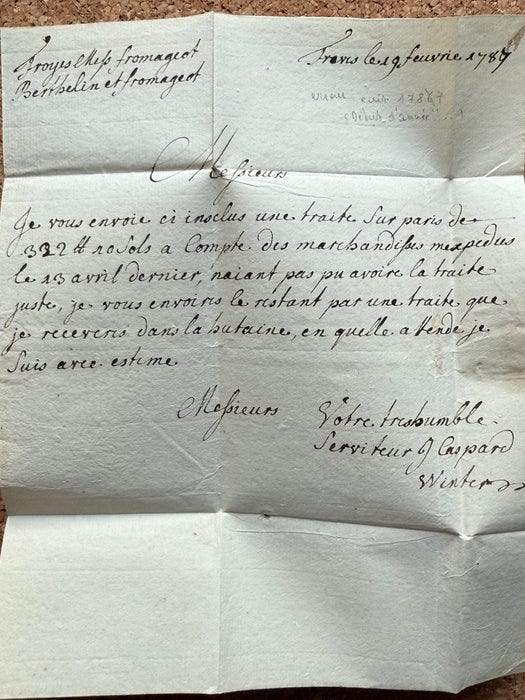 Troyes Mess fromageot
Berthelin et fromageot
Treves le 19 feuvrie 1787
erreur écrit 1787
(début d'année ...)
Messieurs
Je vous envoie ci insclus une traite sur paris de
322 ₶ 10 sols a Compte des marchandises mexpedies
le 13 avril dernier, naiant pas pu avoire la traite
juste, je vous envoiris le restant par une traite que
je receveris dans la hutaine, en quelle attende je
suis avec estime
Messieurs
Votre treshumble
Serviteur J Caspard
Winter